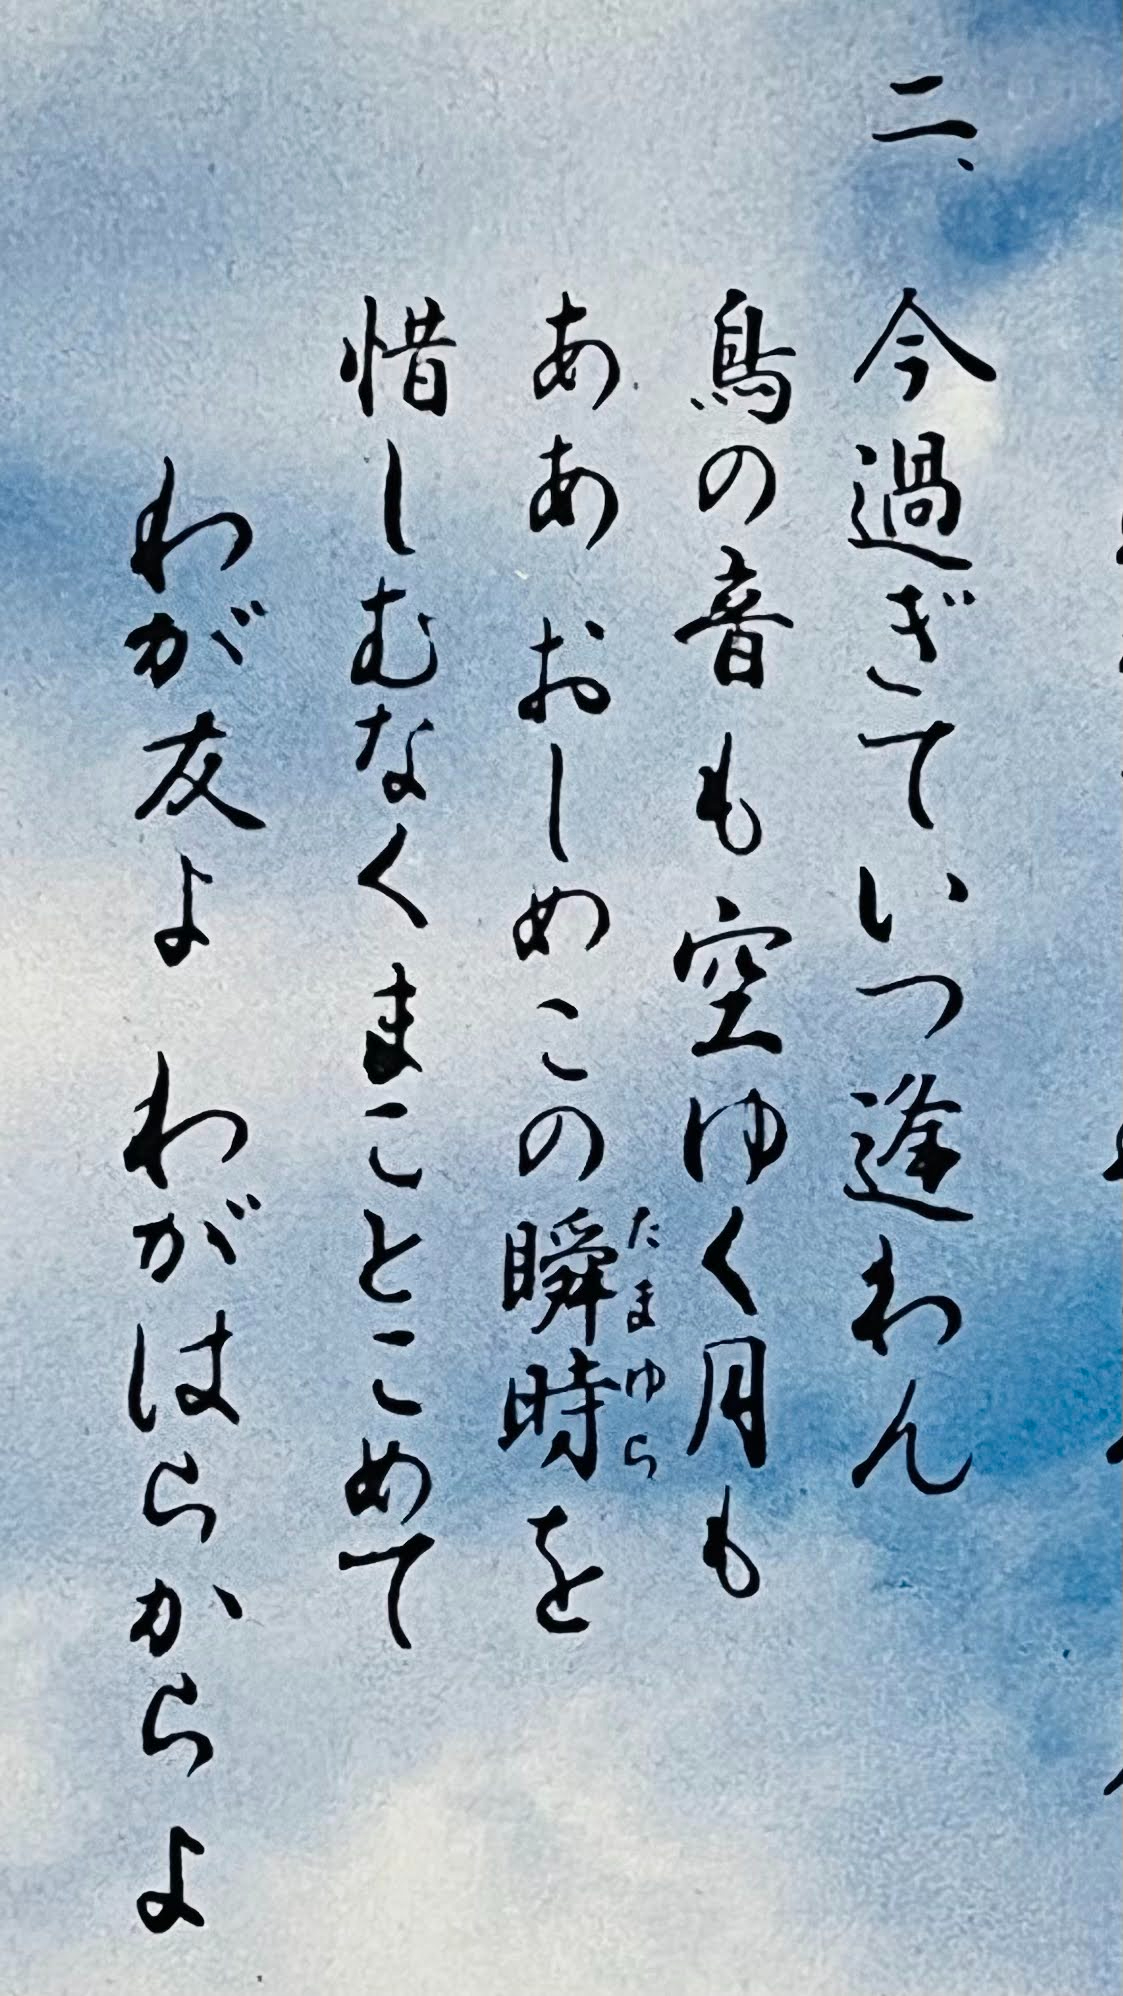 二、
今過ぎていつ逢わん
鳥の音も空ゆく月も
ああ おしめこの瞬時を
たまゆら
惜しむなくまことこめて
わが友よ わがはらからよ